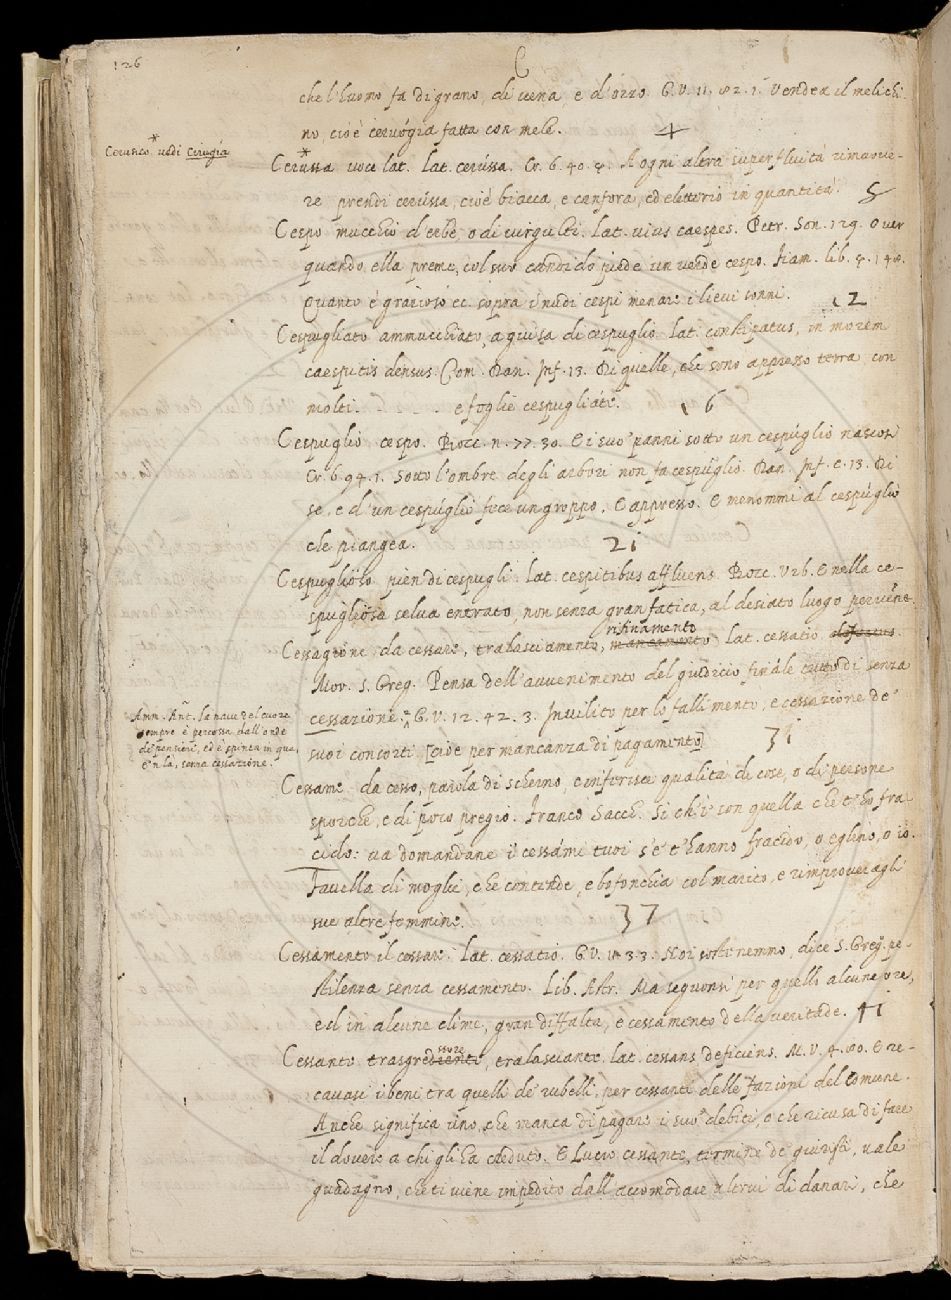 126
C
che l'huomo fa di grano, di vena, e d'orzo. G.V. 11. 82. 1. Vendea il melichi
no, cioè cervógia fatta con mele.
+
* Cerusico vedi Cirugia
* Cerussa voce lat. Lat. cerússa. Cr. 6. 40. 4. A ogni altra superfluità rimuove-
re prendi cerússa, cioè biacca, e canfora, ed elitterio in quantità.
Cespo mucchio d'erbe, o di virgulti. Lat. vivus caespes. Petr. Son. 129. Over
quando, ella preme, col suo candido piede un verde cespo. Fiam. lib. 4. 140.
Quanto è grazioso ec. sopra i nudi cespi menare i lievi sonni.
12
Cespugliato ammucchiato, a guisa di cespuglio Lat. constipatus, in morem
caespitis densus Com. Dan. Inf. 13. Di quelle, che sono appresso terra con
molti. . . . . e foglie cespugliate.
16
Cespuglio cespo. Bocc. n. 77. 30. E i suo' panni sotto un cespuglio nascosi
Cr. 6. 94. 1. Sotto l'ombre degli arbori non fa cespuglio. Dan. Inf. c. 13. Di
se, e d'un cespúglio fece un groppo, E appresso. E menommi al cespúglio
che piangea.
21
Cespuglióso pien di cespugli. Lat. cespitibus affluens. Bocc. V2b. E nella ce-
spugliosa selva entrato, non senza gran fatica, al desiato luogo pervéne.
rifinamento
Cessagione da cessare, tralasciamento, mancamento Lat. cessatio
Mor. S. Greg. Pensa dell'avvenimento del giudicio finále tutto dì senza
cessazione. G.V. 12. 42. 3. Invilito per lo fallimento, e cessazione de'
suoi consorti [cioè per mancanza di pagamento]
31
Amm. Ant. la nave del cuore
sempre è percossa dall'onde
di pensieri, ed è spinta in qua,
e 'n là, senza cessazione.
Cessame da cesso, parola di scherno, e inferisce qualità di cose, o di persone
sporche, e di poco pregio. Franco Sacch. Si ch'i' son quella che t'hò fra
cido: va domandane i cessámi tuoi s'e' t'hanno fracido, o eglino, o io.
Favella di moglie, che contende, e bofonchia col marito, e rimproveragli
sue altre femmine.
37
Cessamento il cessare. Lat. cessatio. G.V. 11. 3. 3. Noi sostenemmo, dice S. Greg. pe-
stilenza senza cessamento. Lib. Astr. Ma seguonsi per quelli alcune ore,
ed in alcune clime, gran diffalta, e cessamento della veritade.
41
ssore
Cessante trasgrediente, tralasciante. lat. cessans deficiens. M.V. 4. 80. E re-
cavasi i beni tra quelli de' rubelli, per cessante delle fazioni del comune.
Anche significa uno, che manca di pagare i suo' debiti, o che ricusa di fare
il dovere a chi gli ha creduto. E Lucro cessante, termine de' giuristi, vale
guadagno, che ti viene impedito dall'accomodare altrui di danari, che